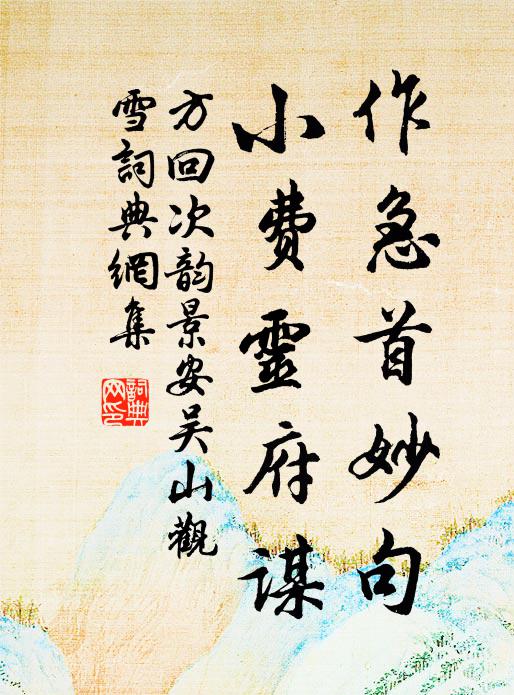 作急首妙句
小费靈府谋
方回次韵景安吴山觀
雪詞典網集
詞典网印